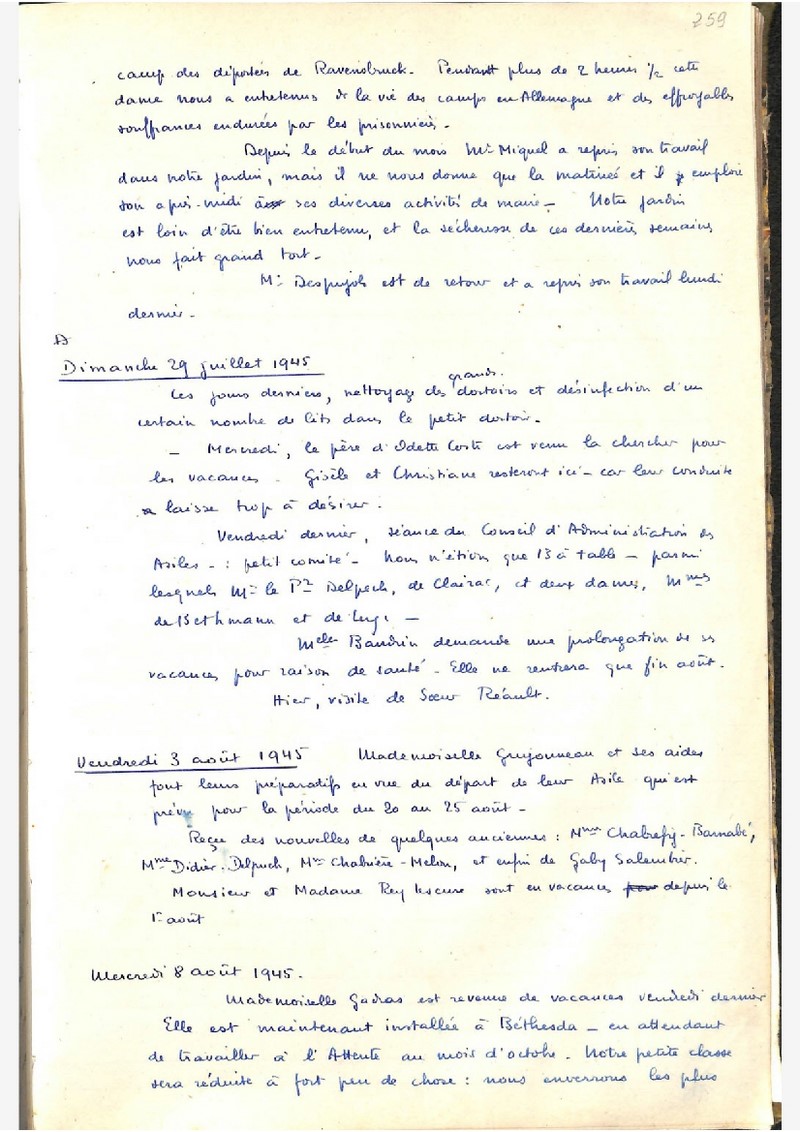 259
camp des déportés de Ravensbruck. Pendant plus de 2 heures 1/2 cette
dame nous a entretenus de la vie des camps en Allemagne et des effroyables
souffrances endurées par les prisonniers.
Depuis le début du mois Mr Miquel a repris son travail
dans notre jardin, mais il ne nous donne que la matinée et il emploie
son après-midi à ses diverses activités de maire. Notre jardin
est loin d'être bien entretenu, et la sécheresse de ces dernières semaines
nous fait grand tort.
Mr Despujols est de retour et a repris son travail lundi
dernier.
Dimanche 29 juillet 1945
grands
Ces jours derniers, nettoyage des dortoirs et désinfection d'un
certain nombre de lits dans le petit dortoir.
- Mercredi, le père d'Odette Coste est venu la chercher pour
les vacances. Gisèle et Christiane resteront ici - car leur conduite
a laissé trop à désirer.
Vendredi dernier, séance du Conseil d'Administration des
Asiles - : petit comité - Nous n'étions que 13 à table - parmi
lesquels Mr le Pr Delpech, de Clairac, et deux dames, Mmes
de Bethmann et de Luze -
Melle Baudrin demande une prolongation de ses
vacances pour raison de santé. Elle ne rentrera que fin août.
Hier, visite de Sœur Réault.
Vendredi 3 août 1945 Mademoiselle Guijonneau et ses aides
font leurs préparatifs en vue du départ de leur Asile qui est
prévu pour la période du 20 au 25 août -
Reçu des nouvelles de quelques anciennes : Mme Chabrefy-Barnabé,
Mme Didier-Delpuch, Mme Chabrière-Melon, et enfin de Gaby Salembier.
Monsieur et Madame Rey Lescure sont en vacances pour depuis le
1er août
Mercredi 8 août 1945.
Mademoiselle Gadras est revenue de vacances vendredi dernier
Elle est maintenant installée à Béthesda - en attendant
de travailler à l'Attente au mois d'octobre. Notre petite classe
sera réduite à fort peu de chose : nous enverrons les plus